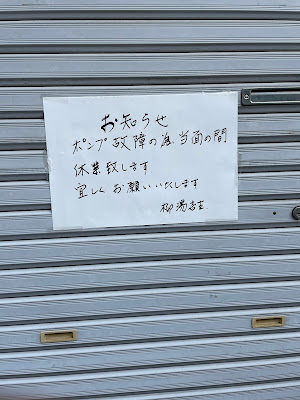 お知らせ
ポンプ故障の為当面の間
休業致します
宜しくお願いいたします
柳湯